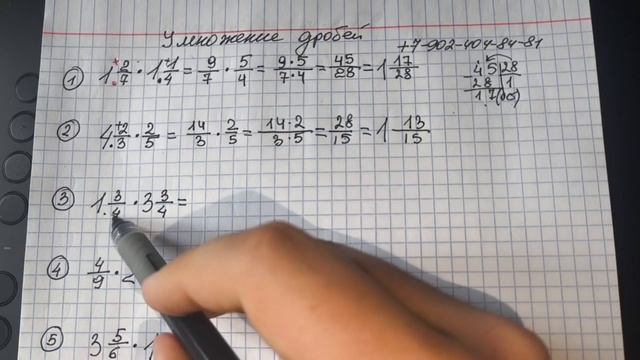 Умножение дробей
+7-902-404-84-81
① 1 2/7 · 1 1/4 = 9/7 · 5/4 = 9·5/7·4 = 45/28 = 1 17/28
45 28
28 1
17 (ост)
② 4 2/3 · 2/5 = 14/3 · 2/5 = 14·2/3·5 = 28/15 = 1 13/15
③ 1 3/4 · 3 3/4 =
④ 4/9 ·
⑤ 3 5/6 · 1